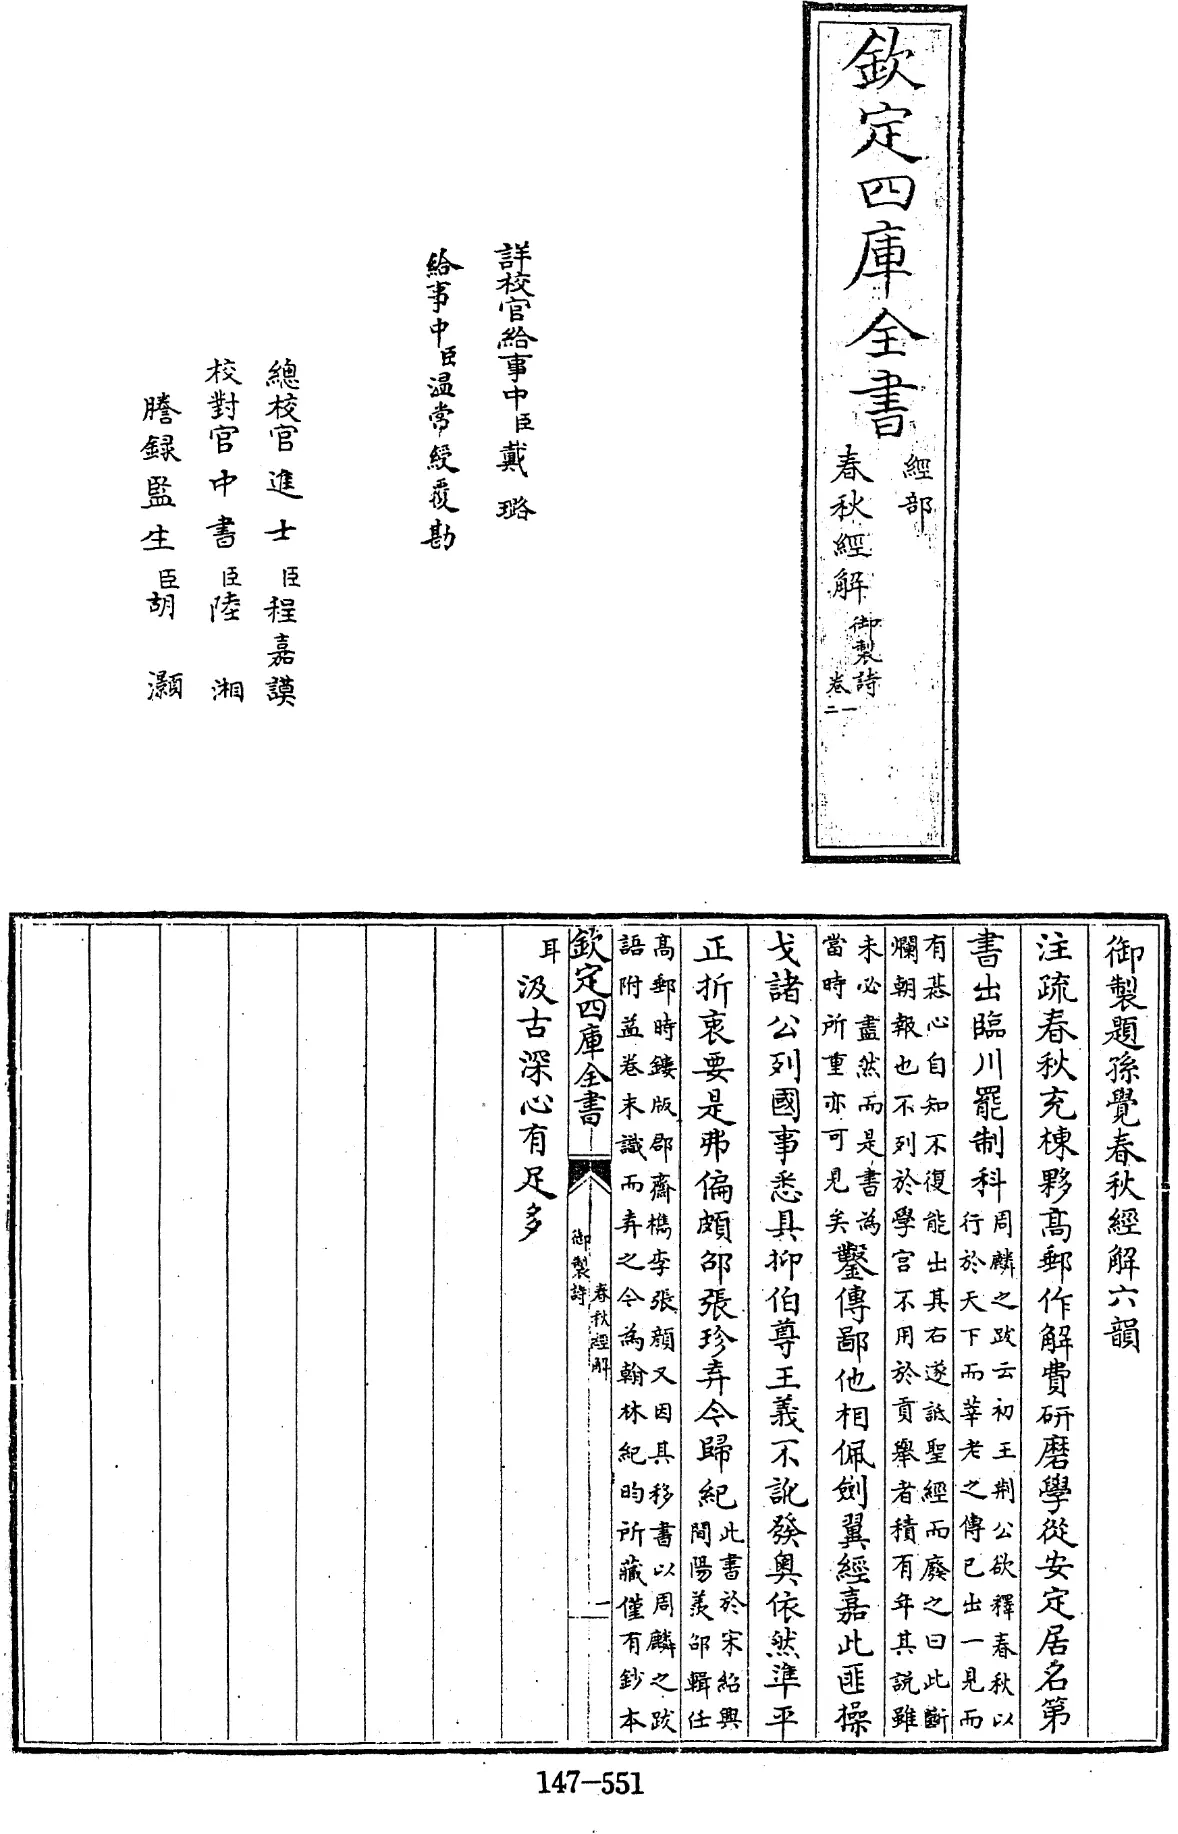 欽定四庫全書
經部
春秋經解
御製詩
卷一
二
詳校官給事中臣戴璐
給事中臣温常綬覆勘
總校官進士臣程嘉謨
校對官中書臣陸湘
謄録監生臣胡灝
御製題孫覺春秋經解六韻
注疏春秋充棟夥髙郵作解費研磨學從安定居名第
書出臨川罷制科
周麟之跋云初王荆公欲釋春秋以
行於天下而莘老之傳已出一見而
有惎心自知不復能出其右遂詆聖經而廢之曰此斷
爛朝報也不列於學宫不用於貢舉者積有年其説雖
未必盡然而是書為
當時所重亦可見矣
鑿傳鄙他相佩劍翼經嘉此匪操
戈諸公列國事悉具抑伯尊王義不訛發奥依然準平
正折衷要是弗偏頗邵張珍弆今歸紀
此書於宋紹興
間陽羨邵輯任
髙郵時鏤版郡齋檇李張顔又因其移書以周麟之跋
語附益卷末識而弆之今為翰林紀昀所藏僅有鈔本
耳
汲古深心有足多
欽定四庫全書
御製詩
春秋經解
一
147-551